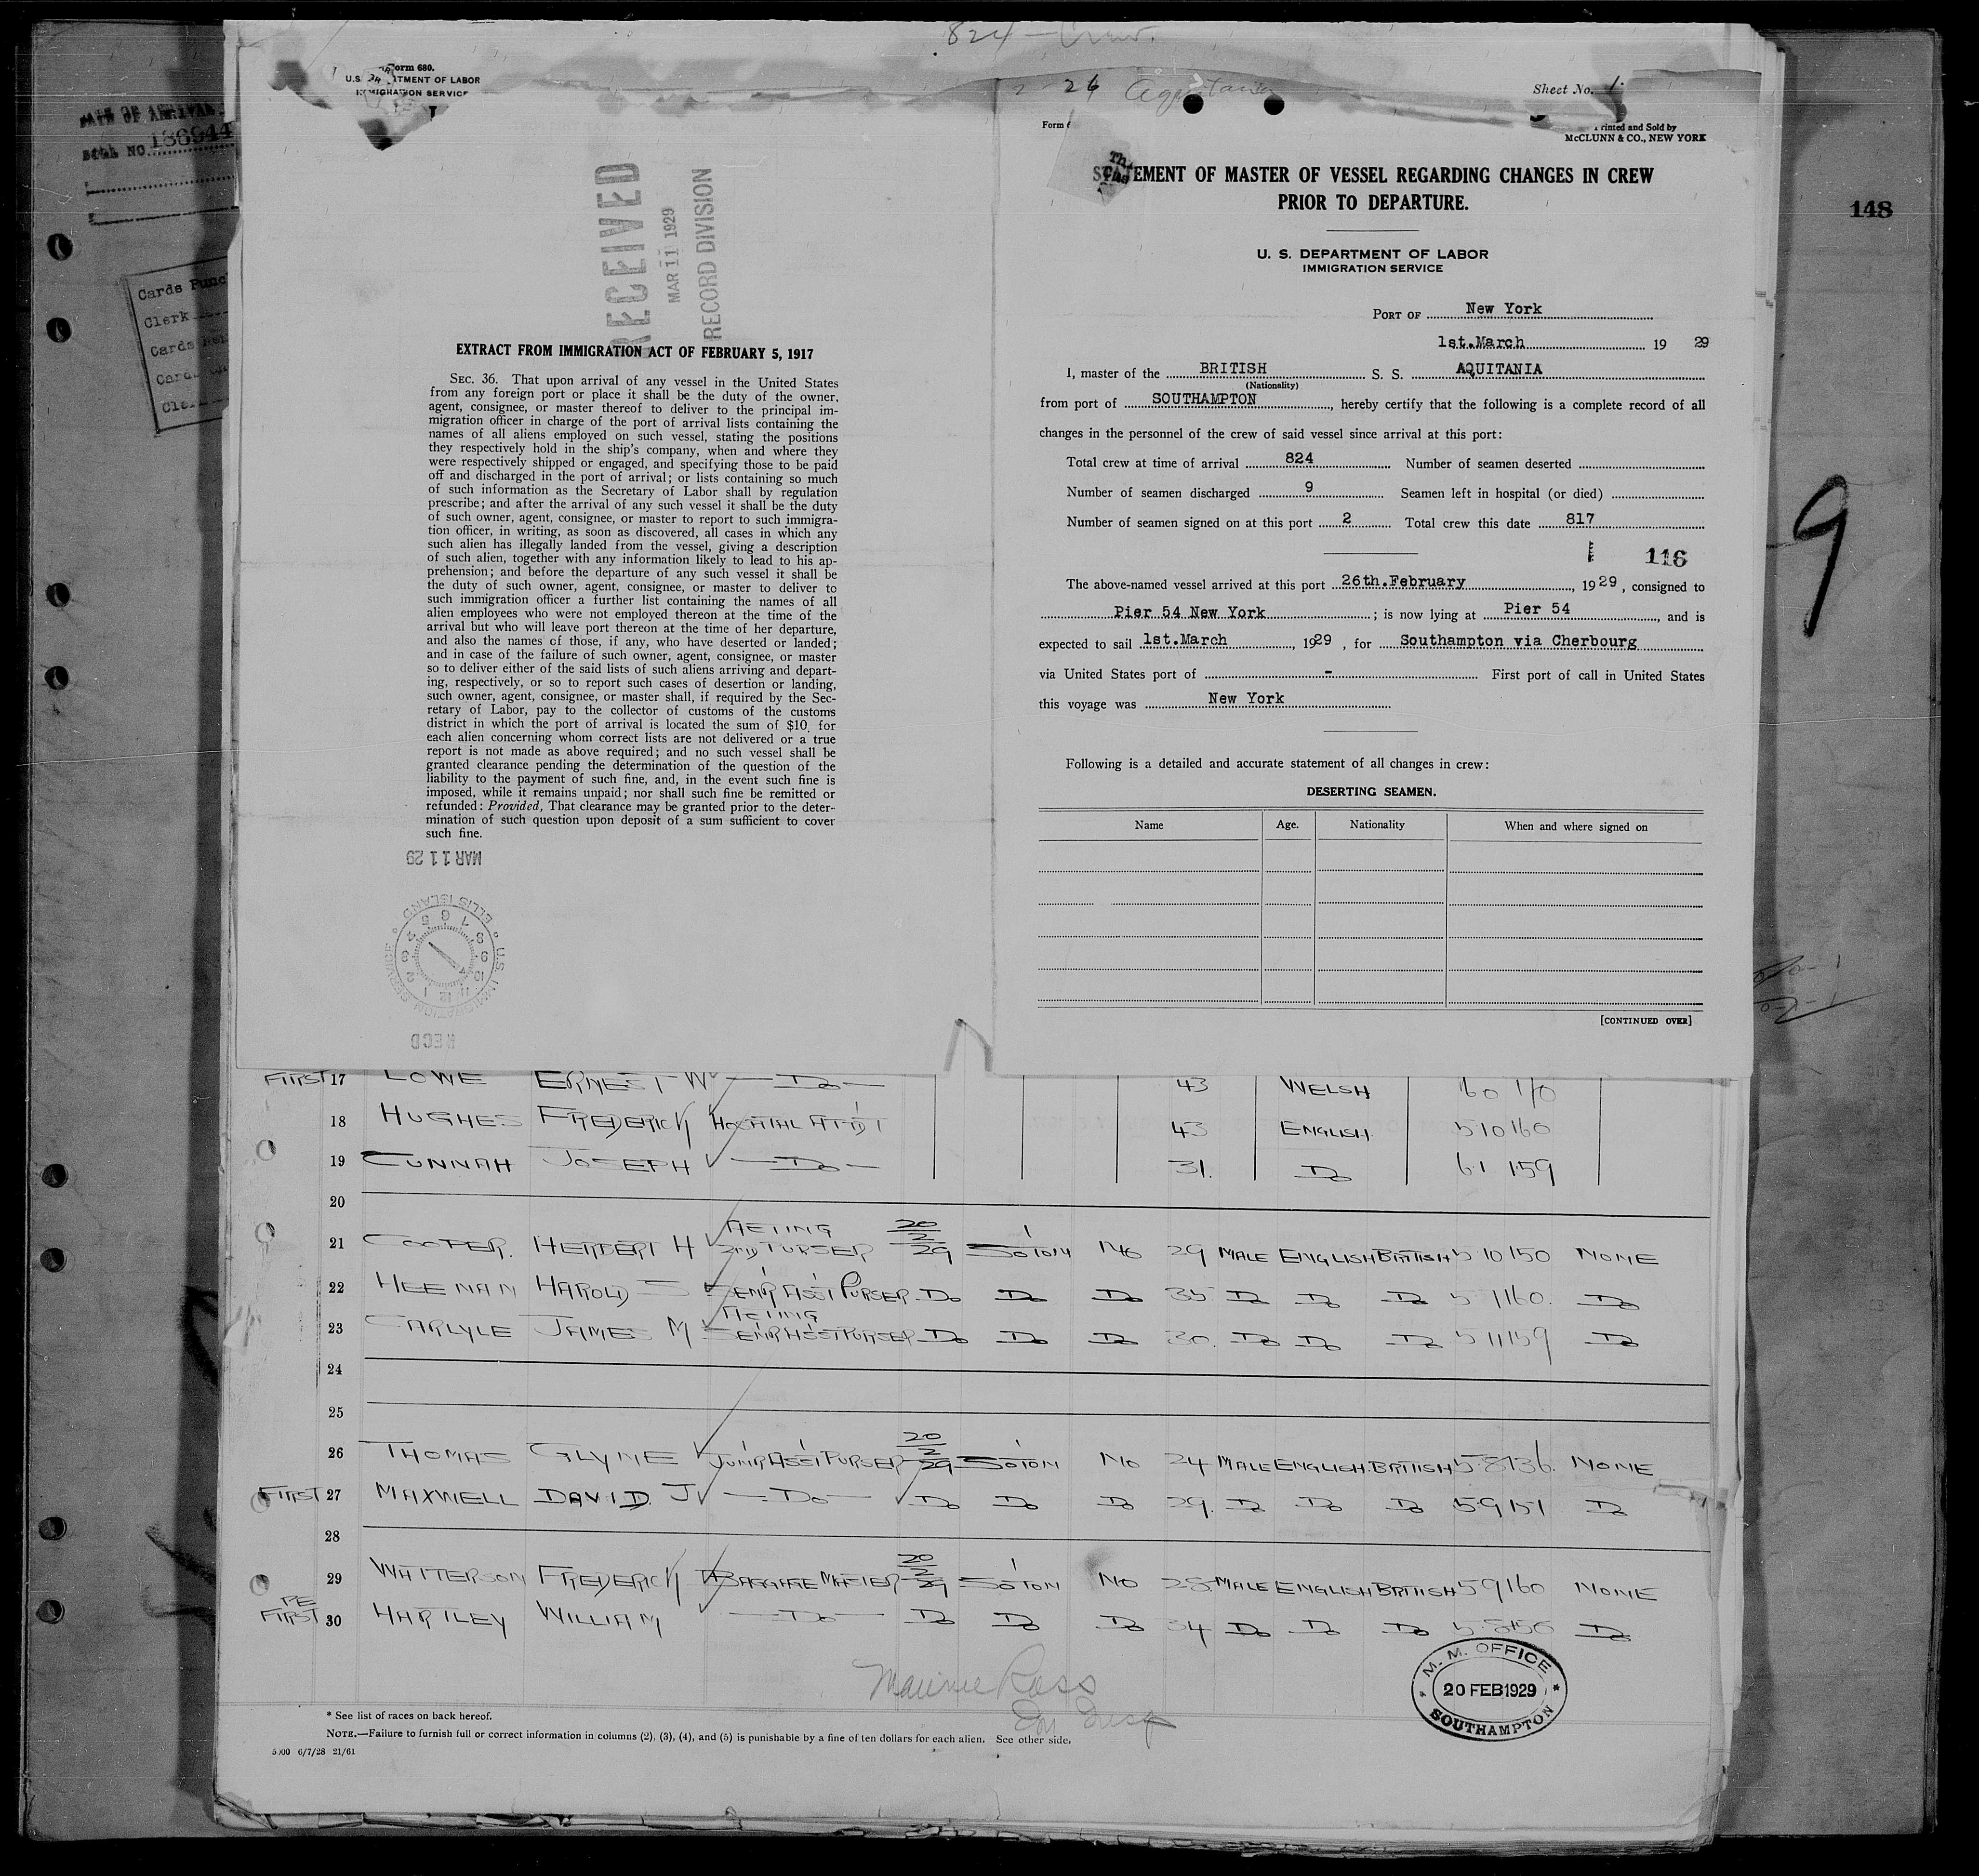 824 – Crew.
Form 680.
U.S. DEPARTMENT OF LABOR
IMMIGRATION SERVICE
26 Aquitania
Sheet No. 1.
Form
Printed and Sold by
McCLUNN & CO., NEW YORK
DATE OF ARRIVAL
ROLL NO. 186944
Cards Punc
Clerk
Cards
Card
Cle
148
9
RECEIVED
MAR 11 1929
RECORD DIVISION
EXTRACT FROM IMMIGRATION ACT OF FEBRUARY 5, 1917
SEC. 36. That upon arrival of any vessel in the United States
from any foreign port or place it shall be the duty of the owner,
agent, consignee, or master thereof to deliver to the principal im-
migration officer in charge of the port of arrival lists containing the
names of all aliens employed on such vessel, stating the positions
they respectively hold in the ship's company, when and where they
were respectively shipped or engaged, and specifying those to be paid
off and discharged in the port of arrival; or lists containing so much
of such information as the Secretary of Labor shall by regulation
prescribe; and after the arrival of any such vessel it shall be the duty
of such owner, agent, consignee, or master to report to such immigra-
tion officer, in writing, as soon as discovered, all cases in which any
such alien has illegally landed from the vessel, giving a description
of such alien, together with any information likely to lead to his ap-
prehension; and before the departure of any such vessel it shall be
the duty of such owner, agent, consignee, or master to deliver to
such immigration officer a further list containing the names of all
alien employees who were not employed thereon at the time of the
arrival but who will leave port thereon at the time of her departure,
and also the names of those, if any, who have deserted or landed;
and in case of the failure of such owner, agent, consignee, or master
so to deliver either of the said lists of such aliens arriving and depart-
ing, respectively, or so to report such cases of desertion or landing,
such owner, agent, consignee, or master shall, if required by the Sec-
retary of Labor, pay to the collector of customs of the customs
district in which the port of arrival is located the sum of $10 for
each alien concerning whom correct lists are not delivered or a true
report is not made as above required; and no such vessel shall be
granted clearance pending the determination of the question of the
liability to the payment of such fine, and, in the event such fine is
imposed, while it remains unpaid; nor shall such fine be remitted or
refunded: Provided, That clearance may be granted prior to the deter-
mination of such question upon deposit of a sum sufficient to cover
such fine.
MAR 11 29
U.S. IMMIGRATION SERVICE * ELLIS ISLAND *
1 2 3 4 5 6 7 8 9 10 11 12
RECD
STATEMENT OF MASTER OF VESSEL REGARDING CHANGES IN CREW
PRIOR TO DEPARTURE.
U. S. DEPARTMENT OF LABOR
IMMIGRATION SERVICE
PORT OF New York
1st.March 19 29
I, master of the BRITISH S. S. AQUITANIA
(Nationality)
from port of SOUTHAMPTON, hereby certify that the following is a complete record of all
changes in the personnel of the crew of said vessel since arrival at this port:
Total crew at time of arrival 824 Number of seamen deserted
Number of seamen discharged 9 Seamen left in hospital (or died)
Number of seamen signed on at this port 2 Total crew this date 817
116
The above-named vessel arrived at this port 26th.February, 1929, consigned to
Pier 54 New York; is now lying at Pier 54, and is
expected to sail 1st.March, 1929, for Southampton via Cherbourg
via United States port of - First port of call in United States
this voyage was New York
Following is a detailed and accurate statement of all changes in crew:
DESERTING SEAMEN.
Name Age. Nationality When and where signed on
[CONTINUED OVER]
FIRST 17 LOWE ERNEST W —Do— 43 WELSH 60 170
18 HUGHES FREDERICK HOSPITAL ATTDT 43 ENGLISH. 510 160
19 CUNNAH JOSEPH —Do— 31. Do 6.1 159
20
21 COOPER. HERBERT H ACTING 2ND PURSER 20/2/29 SOTON NO 29 MALE ENGLISH BRITISH 5 10 150 NONE
22 HEENAN HAROLD S SENR ASST PURSER Do Do Do 35 Do Do Do 5 1160. Do
23 CARLYLE JAMES M ACTING SENR ASST PURSER Do Do Do 30. Do Do Do 5 11159 Do
24
25
26 THOMAS GLYNE JUNR ASST PURSER 20/2/29 SOTON NO 24 MALE ENGLISH BRITISH 5.8136. NONE
FIRST 27 MAXWELL DAVID. J —Do— Do Do Do 29. Do Do Do 59151 Do
28
29 WATTERSON FREDERICK BAGGAGE MASTER 20/2/29 SOTON NO 28 MALE ENGLISH BRITISH 59160 NONE
RE
FIRST 30 HARTLEY WILLIAM —Do— Do Do Do 34 Do Do Do 5.8150 Do
Maurice Ross
M. M. OFFICE
* 20 FEB 1929 *
SOUTHAMPTON
* See list of races on back hereof.
NOTE.—Failure to furnish full or correct information in columns (2), (3), (4), and (5) is punishable by a fine of ten dollars for each alien. See other side.
5000 6/7/28 21/61